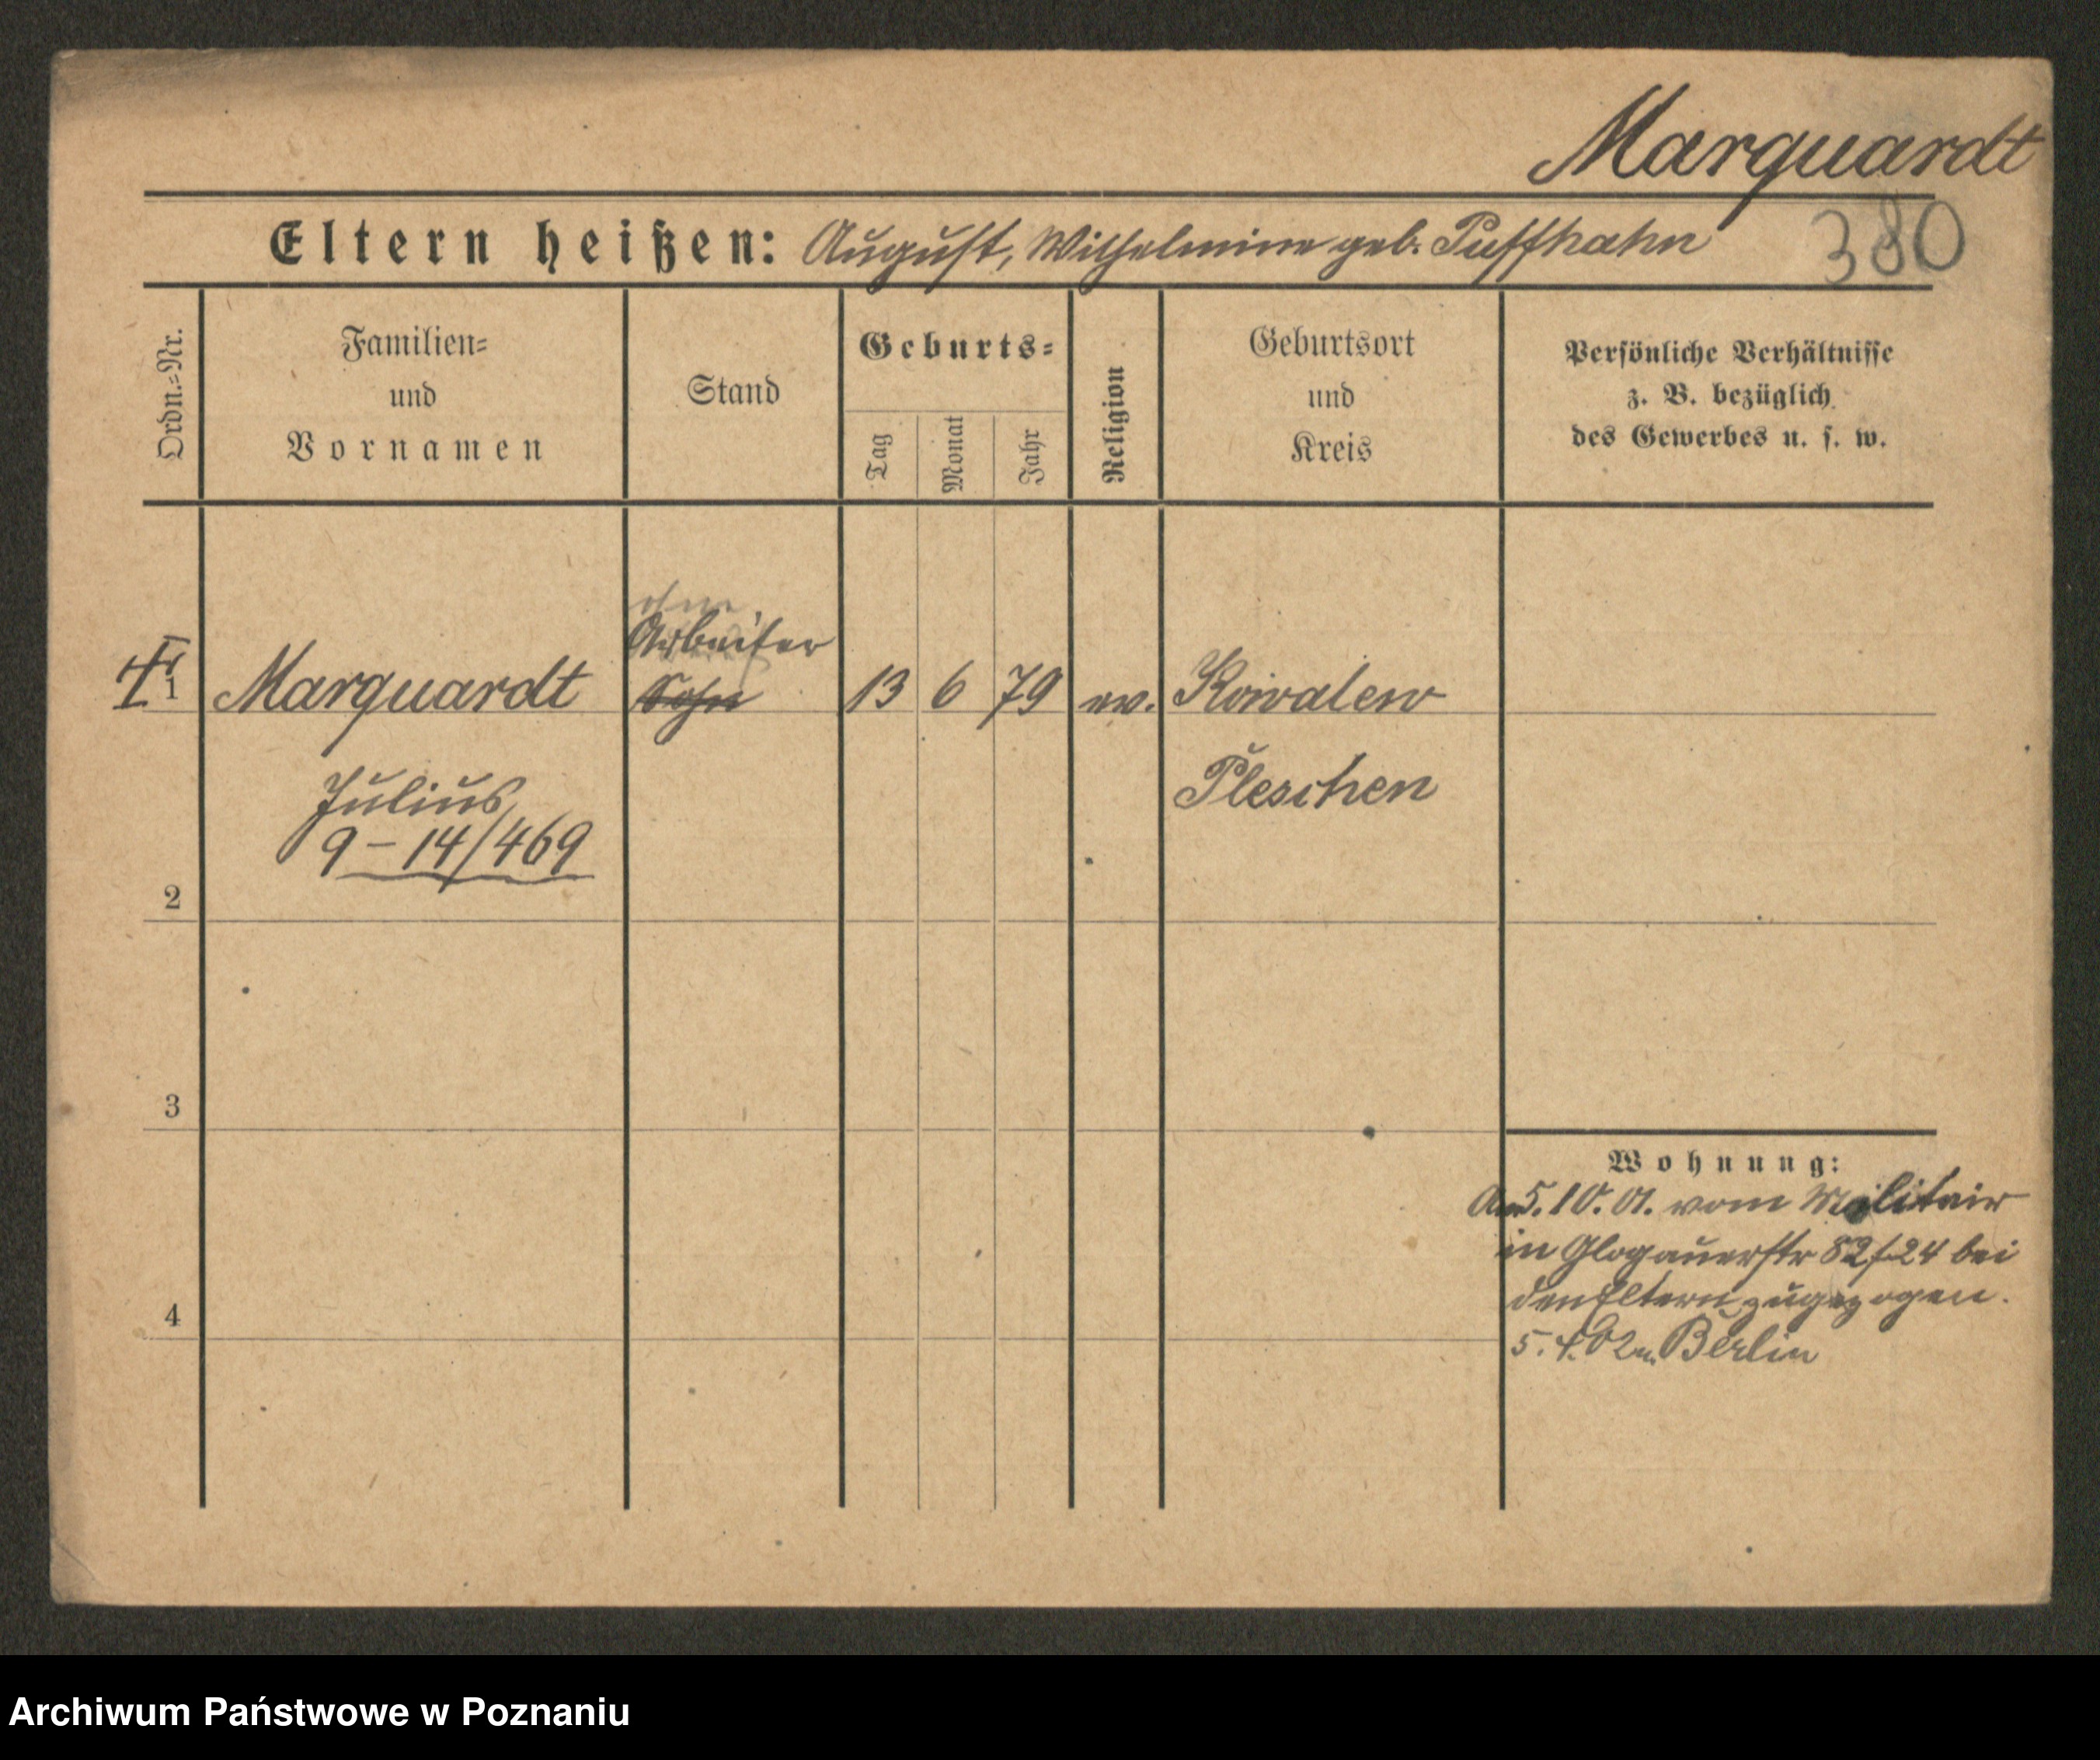 Marquardt
Eltern heißen: August, Wilhelmine geb. Puffhahn
380
Ordn.=Nr.
Familien=
und
Vornamen
Stand
Geburts=
Tag
Monat
Jahr
Religion
Geburtsort
und
Kreis
Persönliche Verhältnisse
z. B. bezüglich
des Gewerbes u. s. w.
ohne
Arbeiter
1 Marquardt Sohn 13 6 79 ev. Kowalew
Julius Pleschen
9–14/469
2
3
Wohnung:
Am 5.10.01. vom Militair
in Glogauerstr 82 f. 24 bei
den Eltern zugezogen.
4
5.4.02 n. Berlin
Archiwum Państwowe w Poznaniu